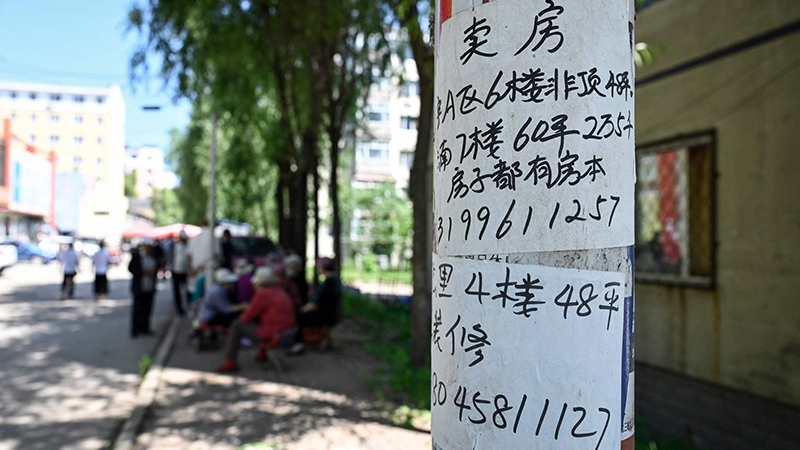 卖房
A区6楼非顶48平
南7楼60平235千
房子都有房本
3199611257
里4楼48平
装修
3045811127